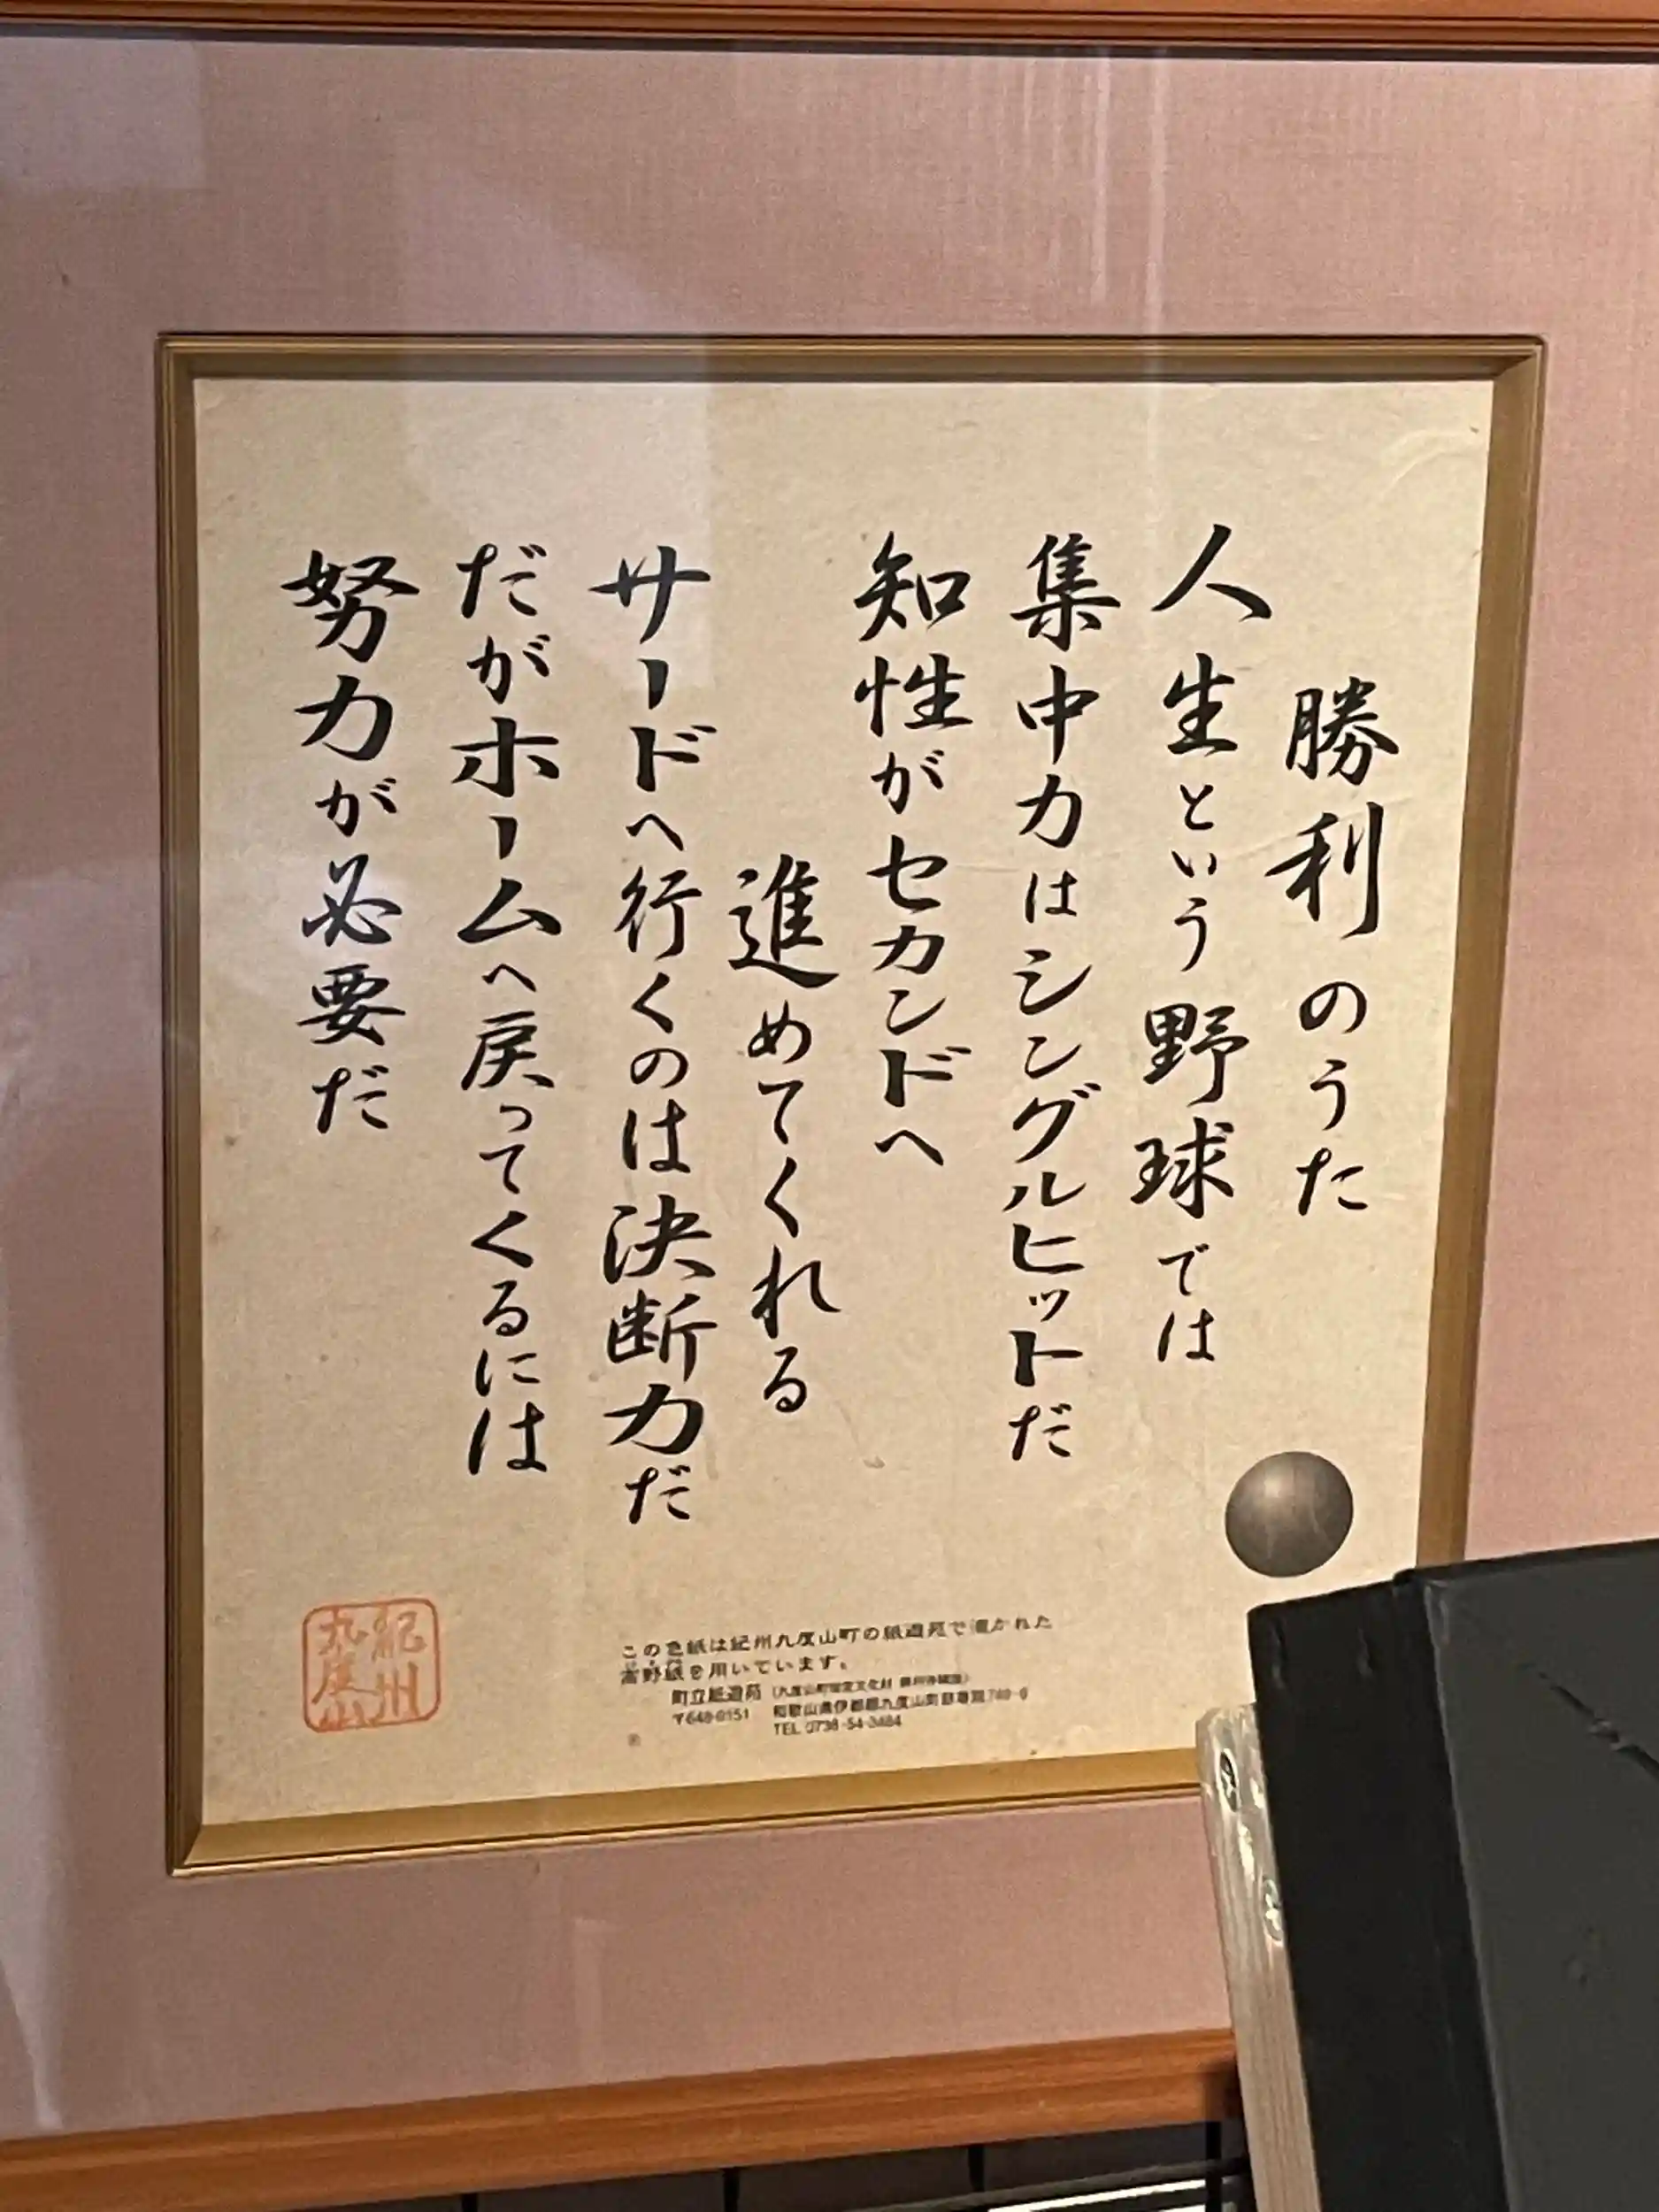 勝利のうた
人生という野球では
集中力はシングルヒットだ
知性がセカンドへ
進めてくれる
サードへ行くのは決断力だ
だがホームへ戻ってくるには
努力が必要だ
紀州
九度山
この色紙は紀州九度山町の紙遊苑で漉かれた
高野紙を用いています。
町立紙遊苑
〒648-0151 和歌山県伊都郡九度山町慈尊院749-6
TEL 0736-54-3484